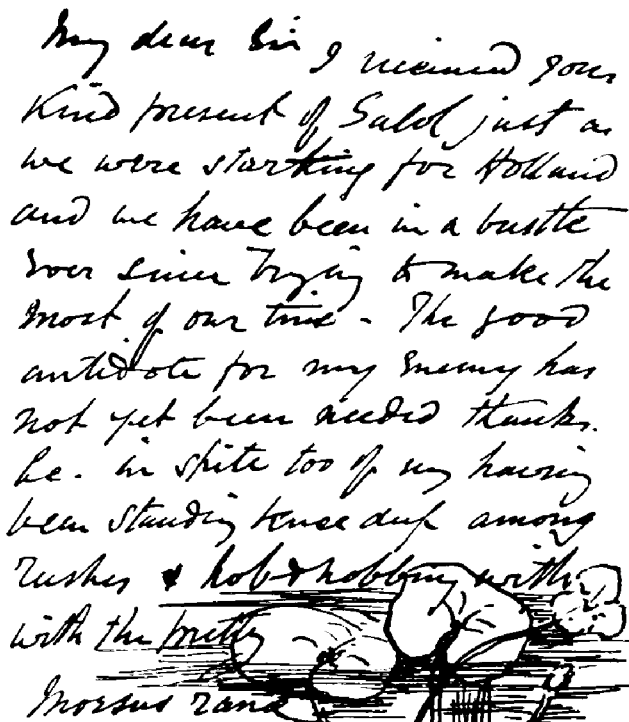 My dear Sir I received your
kind present of Salol just as
we were starting for Holland
and we have been in a bustle
ever since trying to make the
most of our time - The good
antidote for my enemy has
not yet been needed thanks.
&c. in spite too of my having
been standing knee deep among
rushes & hob & nobbing with
with the pretty
Morsus ranæ